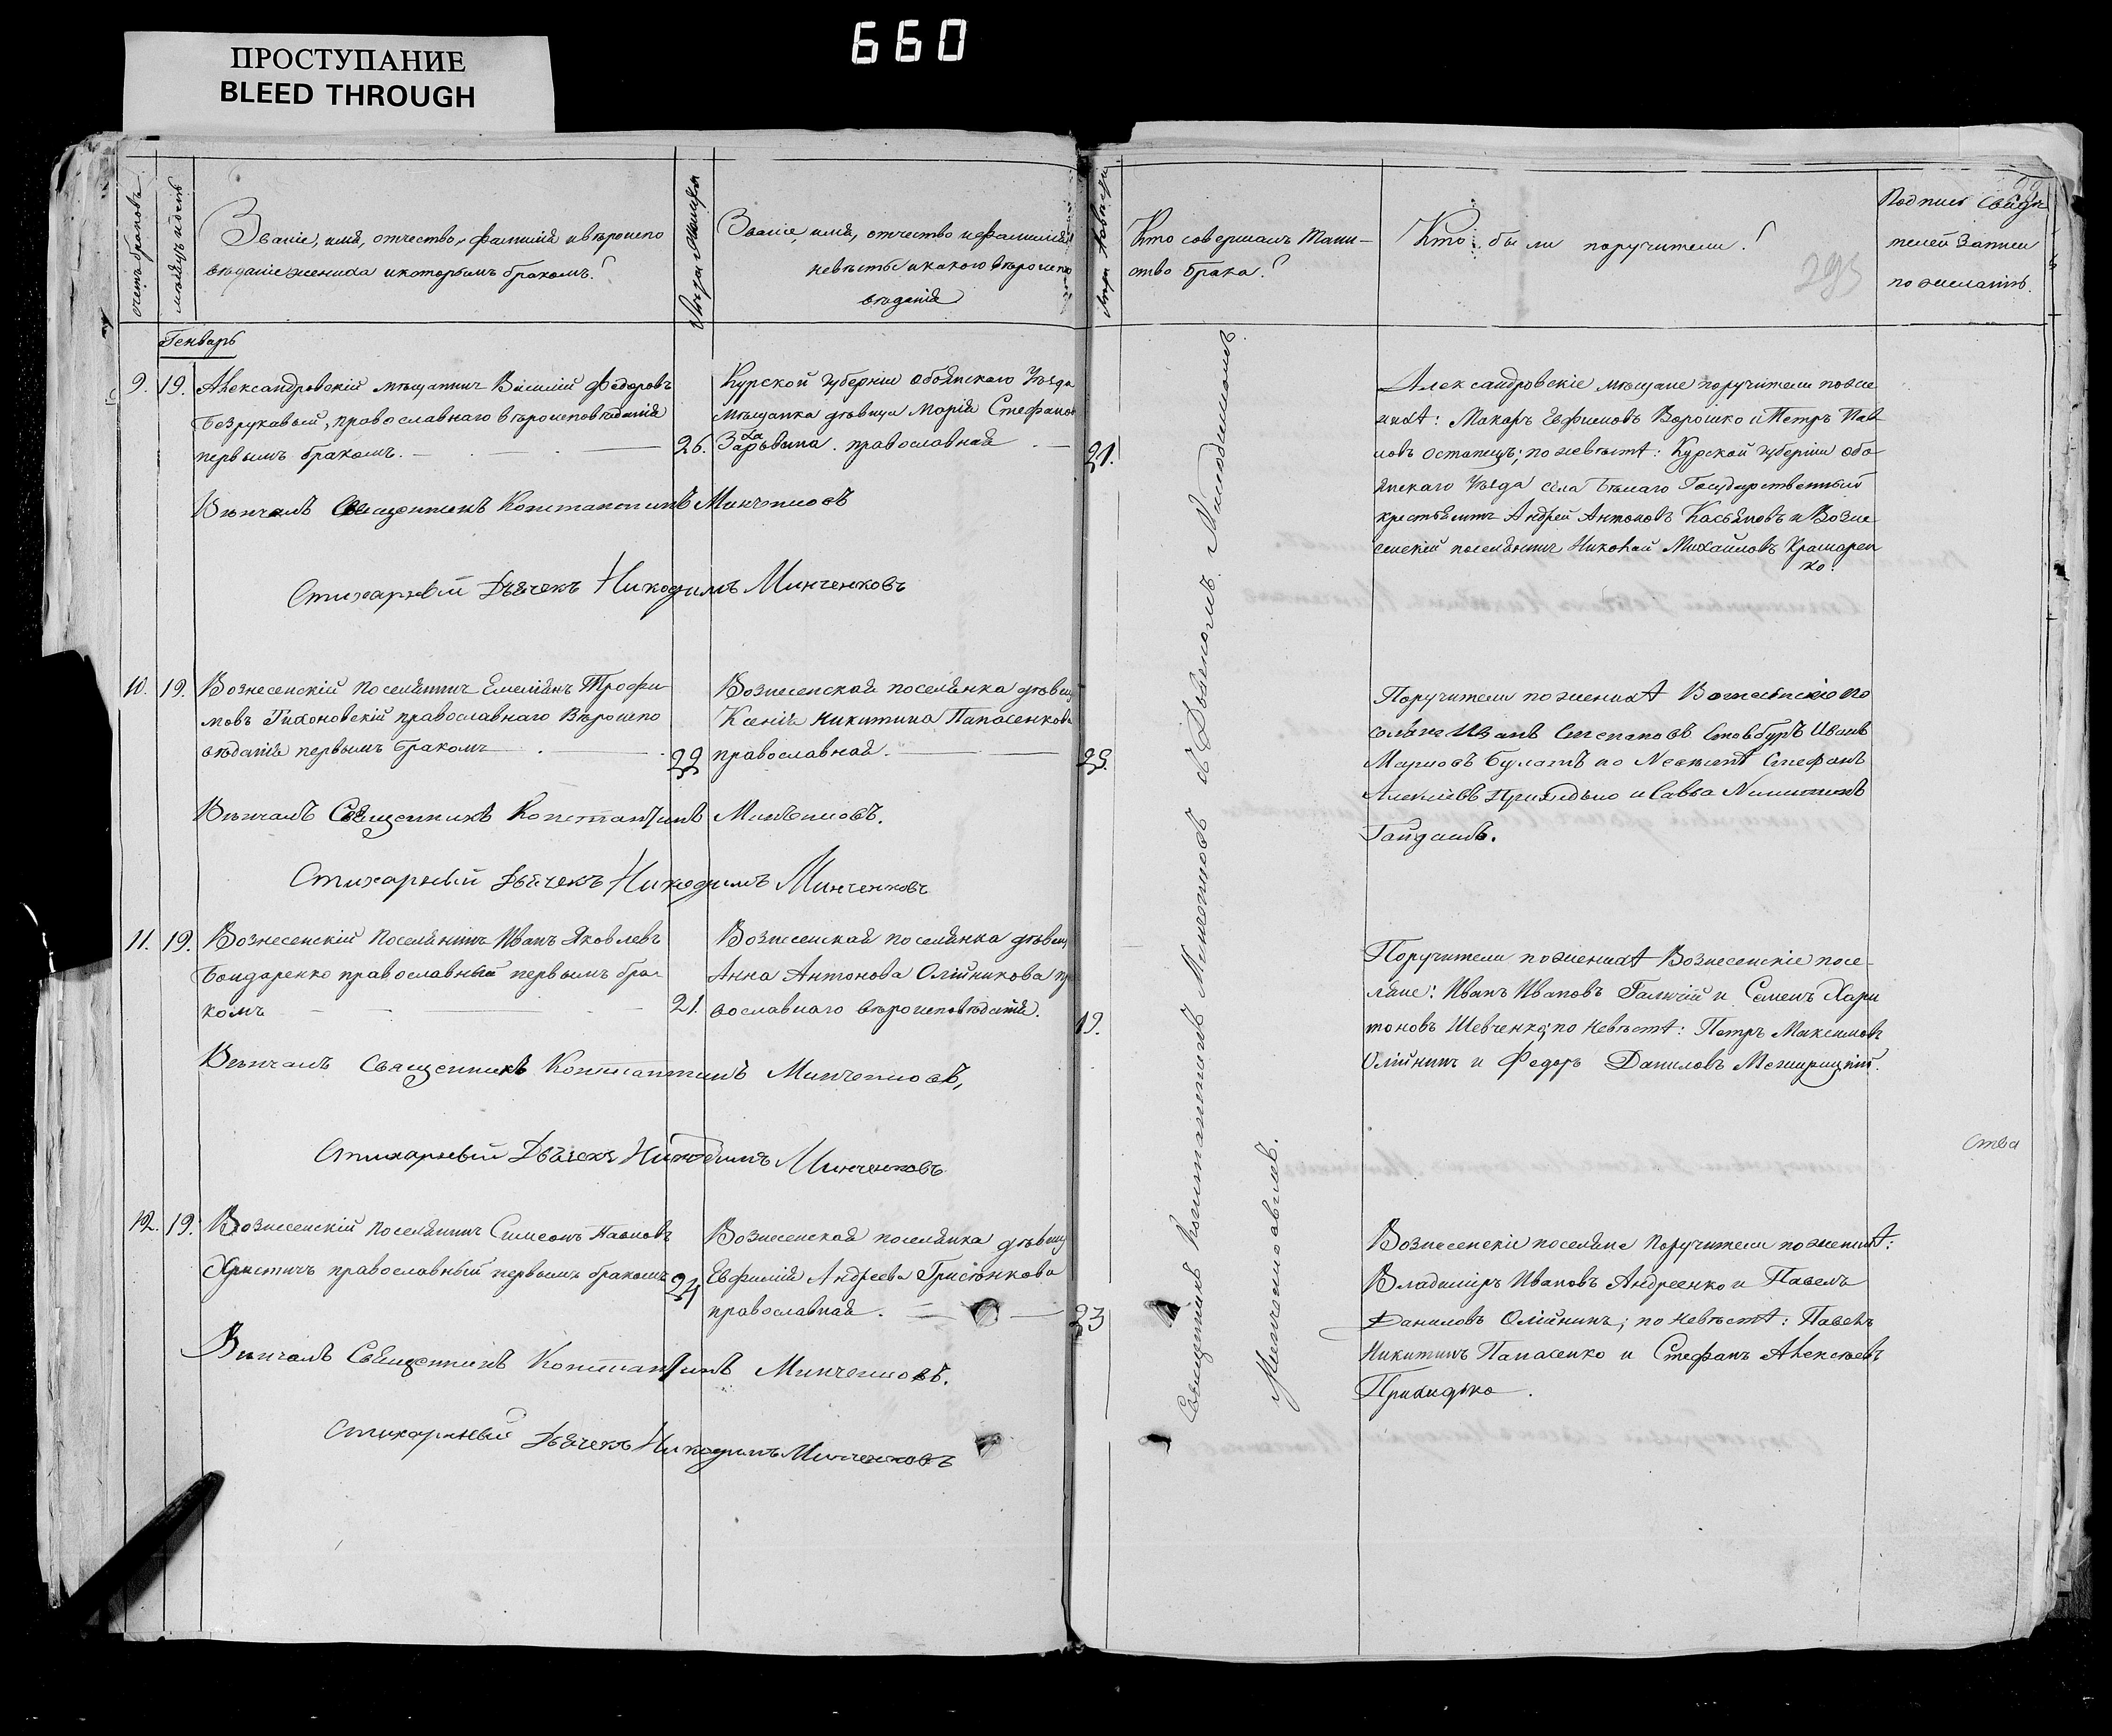 660
ПРОСТУПАНИЕ
BLEED THROUGH
счетъ браковъ
мѣсяцъ и день
Званіе, имя, отчество, фамилія и вѣроиспо
вѣданіе жениха и которымъ бракомъ?
Лѣта жениха
Званіе, имя, отчество и фамилія
невѣсты и какого вѣроиспо
вѣданія
Лѣта невѣсты
Кто совершалъ таин-
ство брака?
Кто были поручители?
293
Подпись свидѣ
телей записи
по желанію.
Генварь
9. 19. Александровскій мѣщанинъ Василій Федоровъ
Безрукавый, православнаго вѣроисповѣданія
первымъ бракомъ.
26.
Курской губерніи Обоянскаго уѣзда
мѣщанка дѣвица Марія Стефанов
православная
21.
Александровскіе мѣщане поручители по же
нихѣ: Макаръ Евфимовъ Ворошко и Петръ Пав
ловъ Остапецъ; по невѣстѣ: Курской губерніи Обо
янскаго уѣзда села Бѣлаго Государственный
крестьянинъ Андрей Антоновъ Касьяновъ и Возне
сенскій поселянинъ Николай Михайловъ Крамарен
ко.
Вѣнчалъ Священникъ Константинъ Минченковъ
Стихарный Дьячекъ Никодимъ Минченковъ
10. 19. Вознесенскій поселянинъ Емеліянъ Трофи
мовъ Тихоновскій православнаго вѣроиспо
вѣданія первымъ бракомъ
22
Вознесенская поселянка дѣвица
Ксенія Никитина Папасенкова
православная.
23.
Поручители по женихѣ Вознесенскіе по
селяне Иванъ Степановъ Стовбуръ Иванъ
Марковъ Булатъ по невѣстѣ Стефанъ
Алексіевъ Приходько и Савва Никитинъ
Гайдашъ.
Вѣнчалъ Священникъ Константинъ Минченковъ.
Стихарный Дьячекъ Никодимъ Минченковъ
11. 19. Вознесенскій поселянинъ Иванъ Яковлевъ
Бондаренко православный первымъ бра-
комъ
21.
Вознесенская поселянка дѣвица
Анна Антонова Олійникова пра
вославнаго вѣроисповѣданія.
19.
Поручители по женихѣ Вознесенскіе посе-
ляне: Иванъ Ивановъ Галичій и Семенъ Хари
тоновъ Шевченко; по невѣстѣ: Петръ Максимовъ
Олійникъ и Федоръ Даниловъ Межирицкій.
Вѣнчалъ Священникъ Константинъ Минченковъ,
Стихарный Дьячекъ Никодимъ Минченковъ
ства
12. 19. Вознесенскій поселянинъ Симеонъ Павловъ
Христичъ православный первымъ бракомъ
24
Вознесенская поселянка дѣвица
Евфимія Андреева Грисюнкова
православная.
23
Вознесенскіе поселяне поручители по женихѣ:
Владиміръ Ивановъ Андреенко и Павелъ
Даниловъ Олійникъ; по невѣстѣ: Павелъ
Никитинъ Папасенко и Стефанъ Алексѣевъ
Приходько.
Вѣнчалъ Священникъ Константинъ Минченковъ.
Стихарный Дьячекъ Никодимъ Минченковъ
Священникъ Константинъ Минченковъ съ Дьячкомъ Никодимомъ
Минченковымъ.